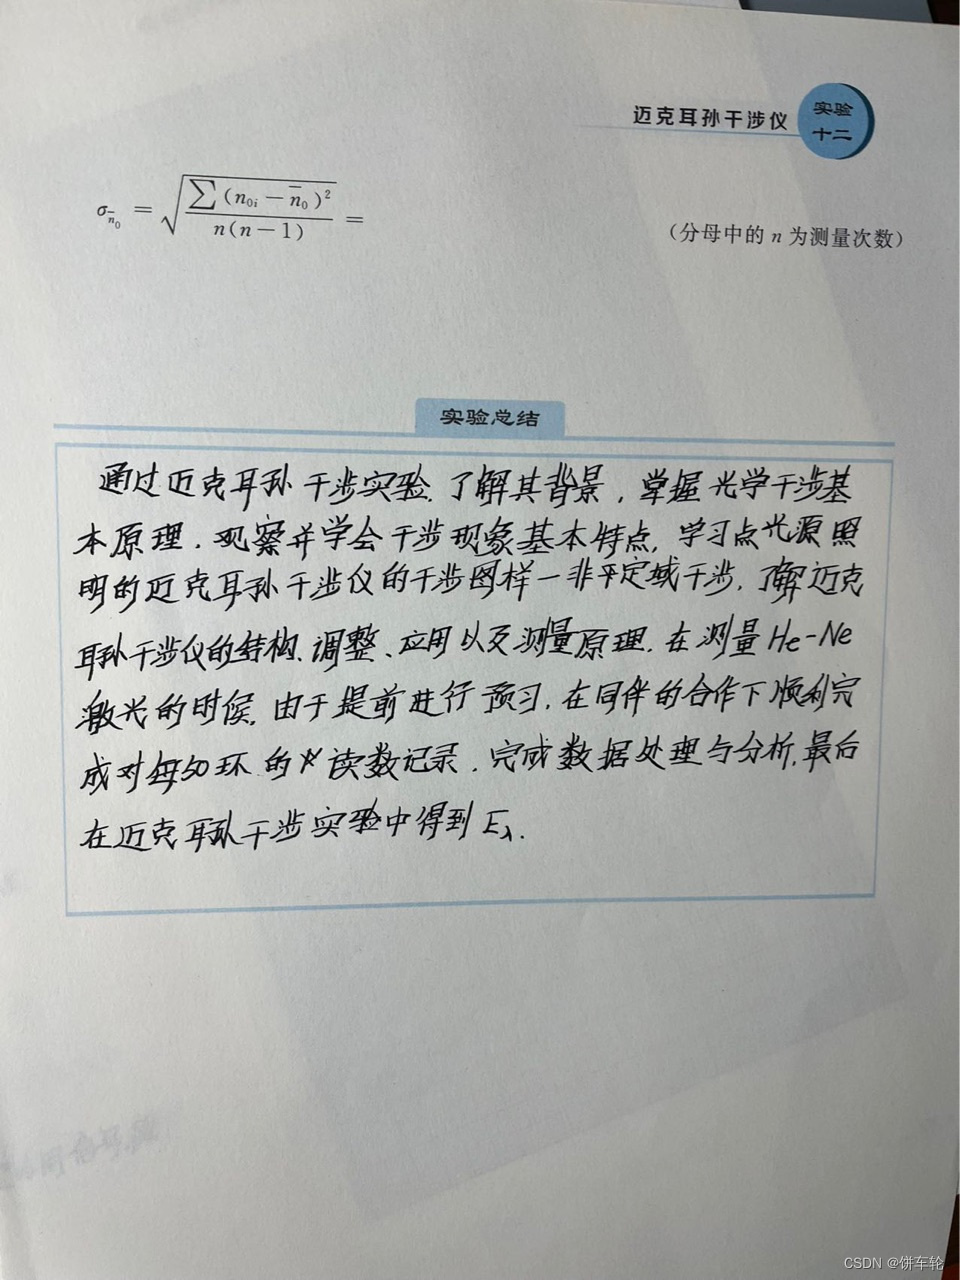 迈克耳孙干涉仪
实验
十二
σ_{n̄₀} = √(∑(n₀ᵢ − n̄₀)² / n(n−1)) =
(分母中的 n 为测量次数)
实验总结
通过迈克耳孙干涉实验.了解其背景,掌握光学干涉基
本原理.观察并学会干涉现象基本特点,学习点光源照
明的迈克耳孙干涉仪的干涉图样一非平定域干涉.了解迈克
耳孙干涉仪的结构、调整、应用以及测量原理.在测量He-Ne
激光的时候,由于提前进行预习,在同伴的合作下顺利完
成对每50环的 读数记录.完成数据处理与分析,最后
在迈克耳孙干涉实验中得到 Eλ.
CSDN @饼车轮